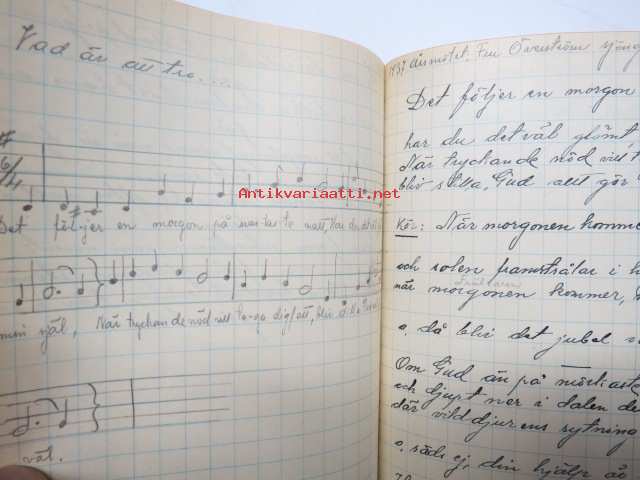 Vad är att tro....
6/4
Det följer en morgon på var-tu-te natt, har du det väl
min själ, När tryckande nöd vill ta-ga dig fatt, bliv
väl.
Antikvariaatti.net
1937 Årsmötet. Fru Överström sjöng
Det följer en morgon
har du det väl glömt
När tryckande nöd vill t
bliv stilla, Gud allt gör
Kör: När morgonen komme
och solen framstrålar i h
när morgonen kommer,
o, då bliv det jubel s
Om Gud än på mörkaste
och djupt ner i dalen de
där vilddjurens rytning
o, räds ej, din hjälp är